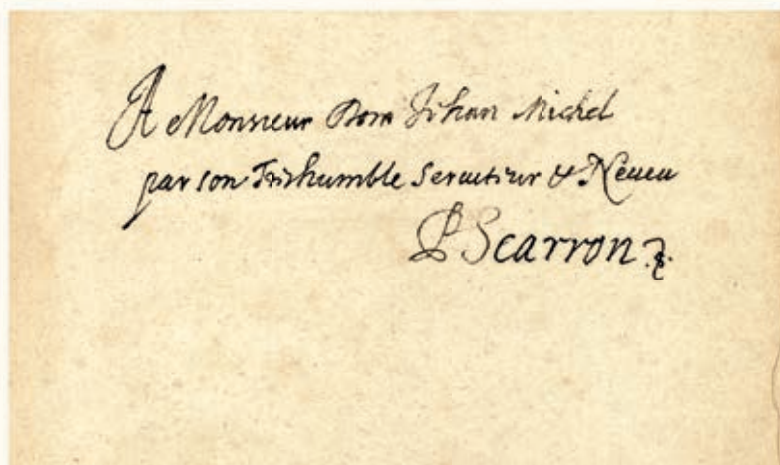 A Monsieur Dom Jehan Michel
par son Treshumble Seruiteur & Neueu
PScarron